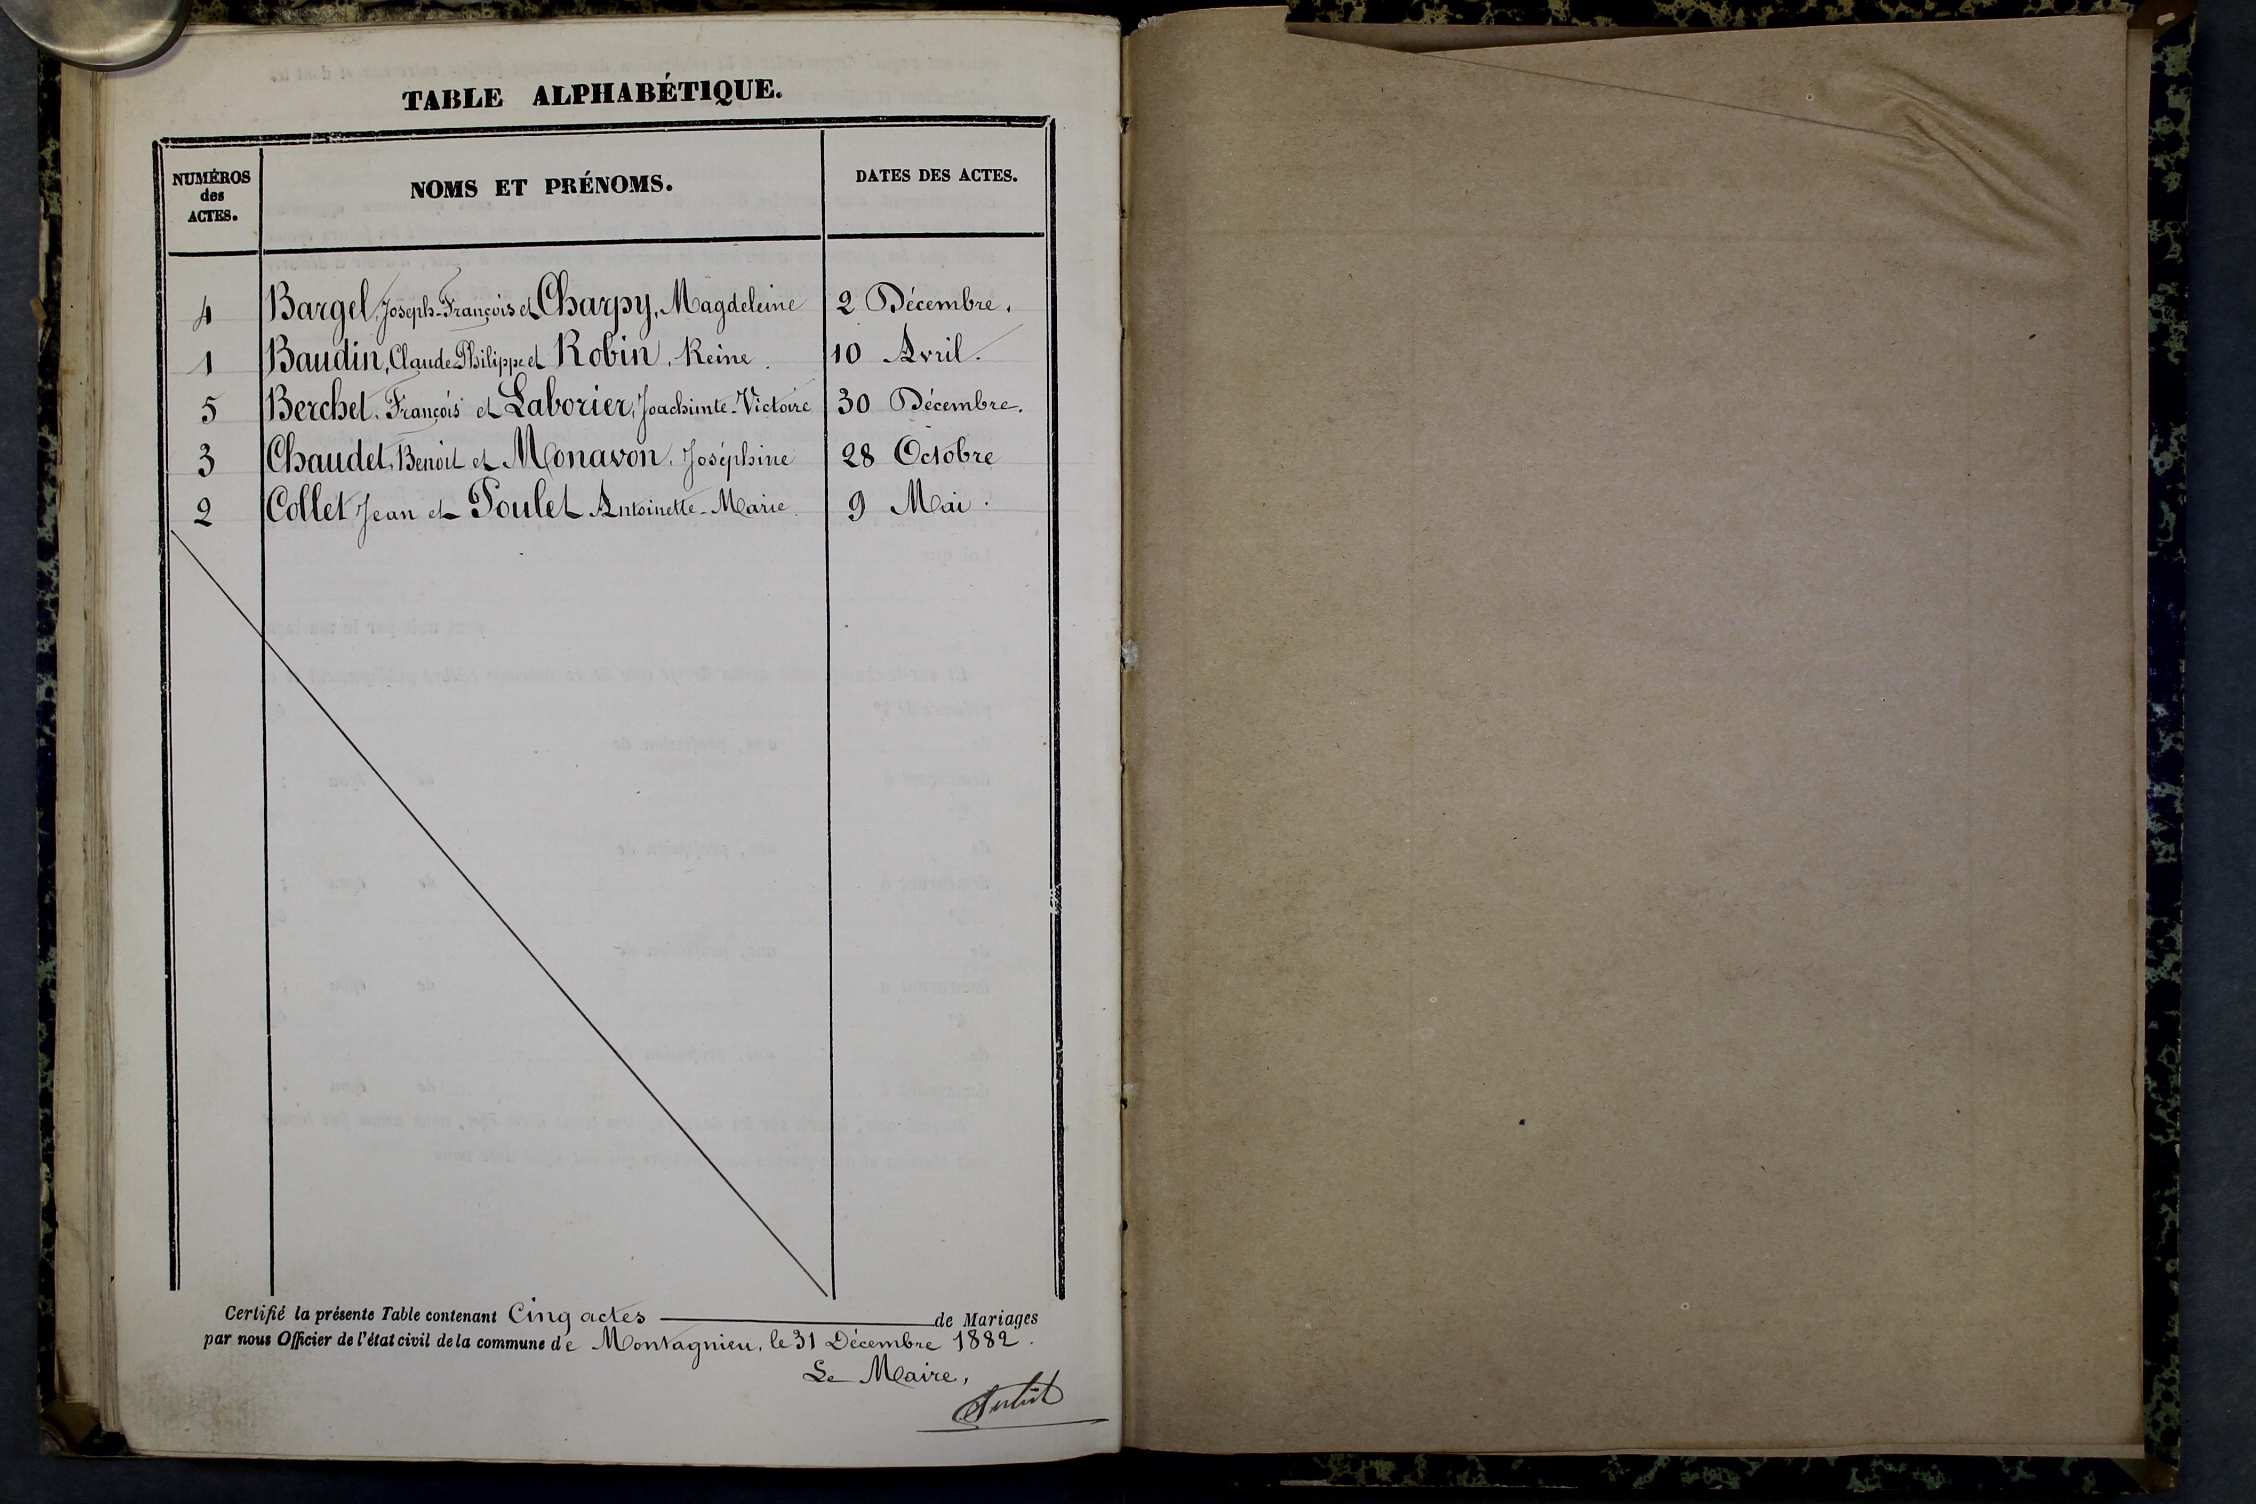 TABLE ALPHABÉTIQUE.
NUMÉROS des ACTES. NOMS ET PRÉNOMS. DATES DES ACTES.
4 Bargel, Joseph-François et Charpy, Magdeleine 2 Décembre.
1 Baudin, Claude-Philippe et Robin, Reine. 10 Avril.
5 Berchet, François et Laborier, Joachimte-Victoire 30 Décembre.
3 Chaudet, Benoit et Monavon, Joséphine 28 Octobre
2 Collet Jean et Poulet Antoinette-Marie. 9 Mai.
Certifié la présente Table contenant Cinq actes de Mariages
par nous Officier de l'état civil de la commune de Montagnieu, le 31 Décembre 1882.
Le Maire,